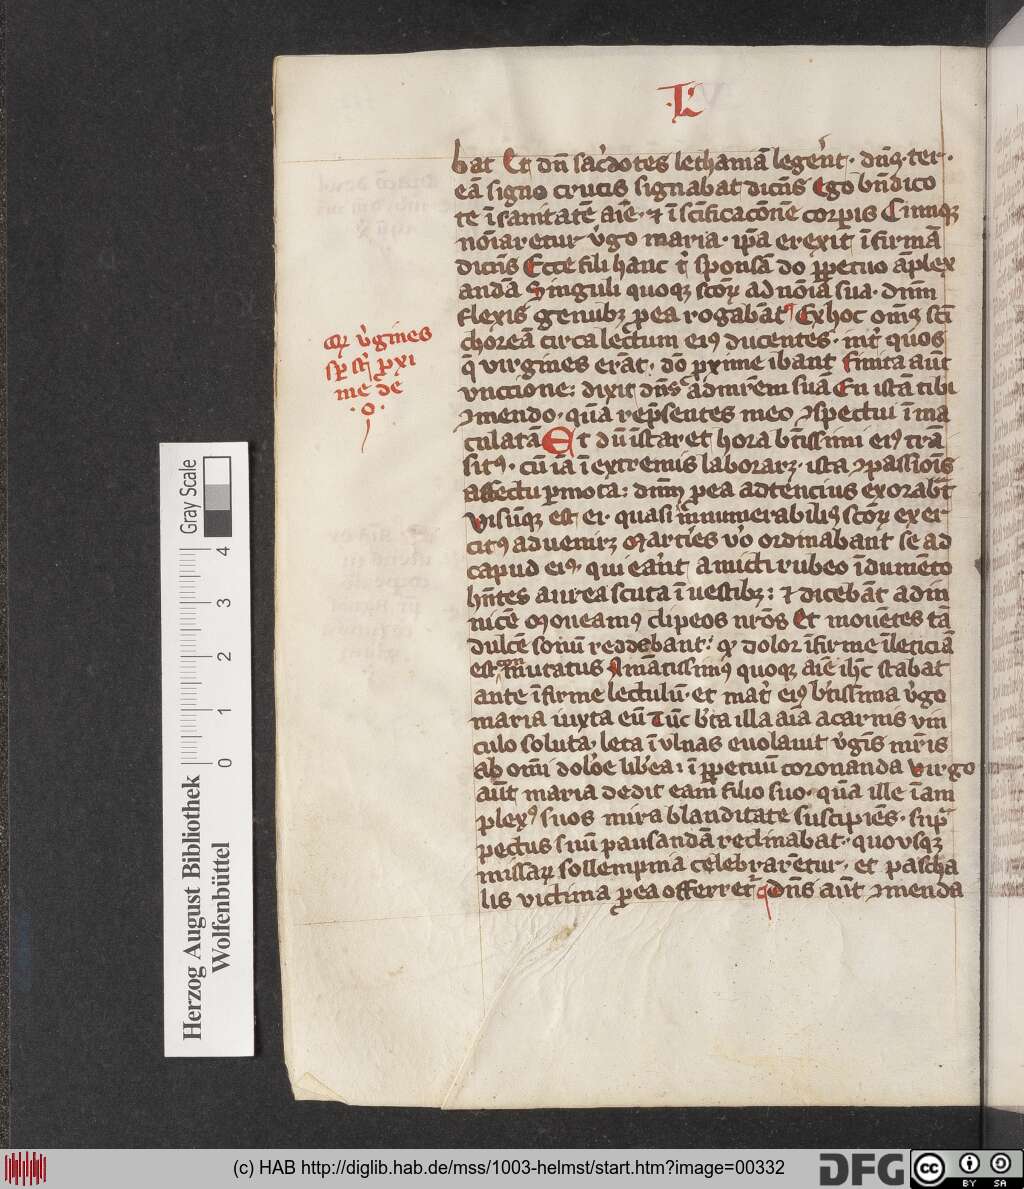 ·L·
bat Et dn̄ sac̓dotes lethaniā legēr̄nt · dn̄s · ter ·
eā signo crucis signabat dicn̄s Ego bn̄dico
te ī sanitatē aīe · ⁊ ī sc̄ificac̄onē corpis Cumqꝫ
noīaretur v̓go maria · ip̄a erexit īfirmā
dicn̄s Ecce fili hanc t̄ sponsā do ꝑpetuo āplex
andā Singuli quoqꝫ sc̄oꝝ ad noīa sua · dn̄m
flexis genubꝫ ꝑ ea rogabāt Ex hoc om̄s sc̄i
choreā circa lectum eiꝯ ducentes · int̓ quos
q̄ virgines erāt · do ꝓxime ibant finita aūt
vnctione: dixit dn̄s admr̄em suā En istā tibi
ꝯmendo · quā repn̄sentes meo ꝯspectui īma
culatā Et dū īstaret hora btīssimi eiꝯ trā
sitꝯ · cū iā ī extremis laborarꝫ · ista ꝯpassiōis
affectu ꝑmota: dn̄m ꝑ ea adtencius exorabt̄
visūqꝫ est ei · quasi īnumerabiliꝯ sc̄oꝝ exer
citꝯ aduenirꝫ Martires v̓o ordinabant se ad
capud eiꝯ · qui eānt amicti rubeo īdumēto
hn̄tes aurea scuta ī vestibꝫ: ⁊ dicebāt adin
nicē Moueamꝯ clipeos nr̄os Et mouētes tā
dulcē sonū reddebant: qꝫ dolor īfirme ī leticiā
est mutatus Amātissimꝯ quoqꝫ aīe ih̄c stabat
ante īfirme lectulū · et mat̓ eiꝯ btīssima v̓go
maria iuxta eū Tūc bt̄a illa aīa a carnis vin
culo soluta · leta ī vlnas euolauit v̓gīs mr̄is
ab om̄i dolōe libēa: ī ꝑpetuū coronanda virgo
aūt maria dedit eam filio suo · quā ille īam
plexꝯ suos mira blanditate suscipiēs · sup̄
pectus suū pausandā reclinabat · quovsqꝫ
missaꝝ sollempnia celebrarētur · et pascha
lis victima ꝑ ea offerret̄ Dn̄s aūt ꝯmenda
qꝫ v̓gines
sꝑ sn̄t ꝓxi
me de
· o ·
Herzog August Bibliothek
Wolfenbüttel
Gray Scale
0 1 2 3 4
(c) HAB http://diglib.hab.de/mss/1003-helmst/start.htm?image=00332
DFG
cc
BY SA